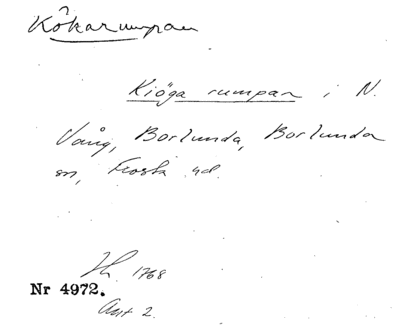 Kökarumpan
Kiöga rumpan i N.
Vång, Borlunda, Borlunda
sn, Frosta hd.
1768
Nr 4972.
Akt 2.